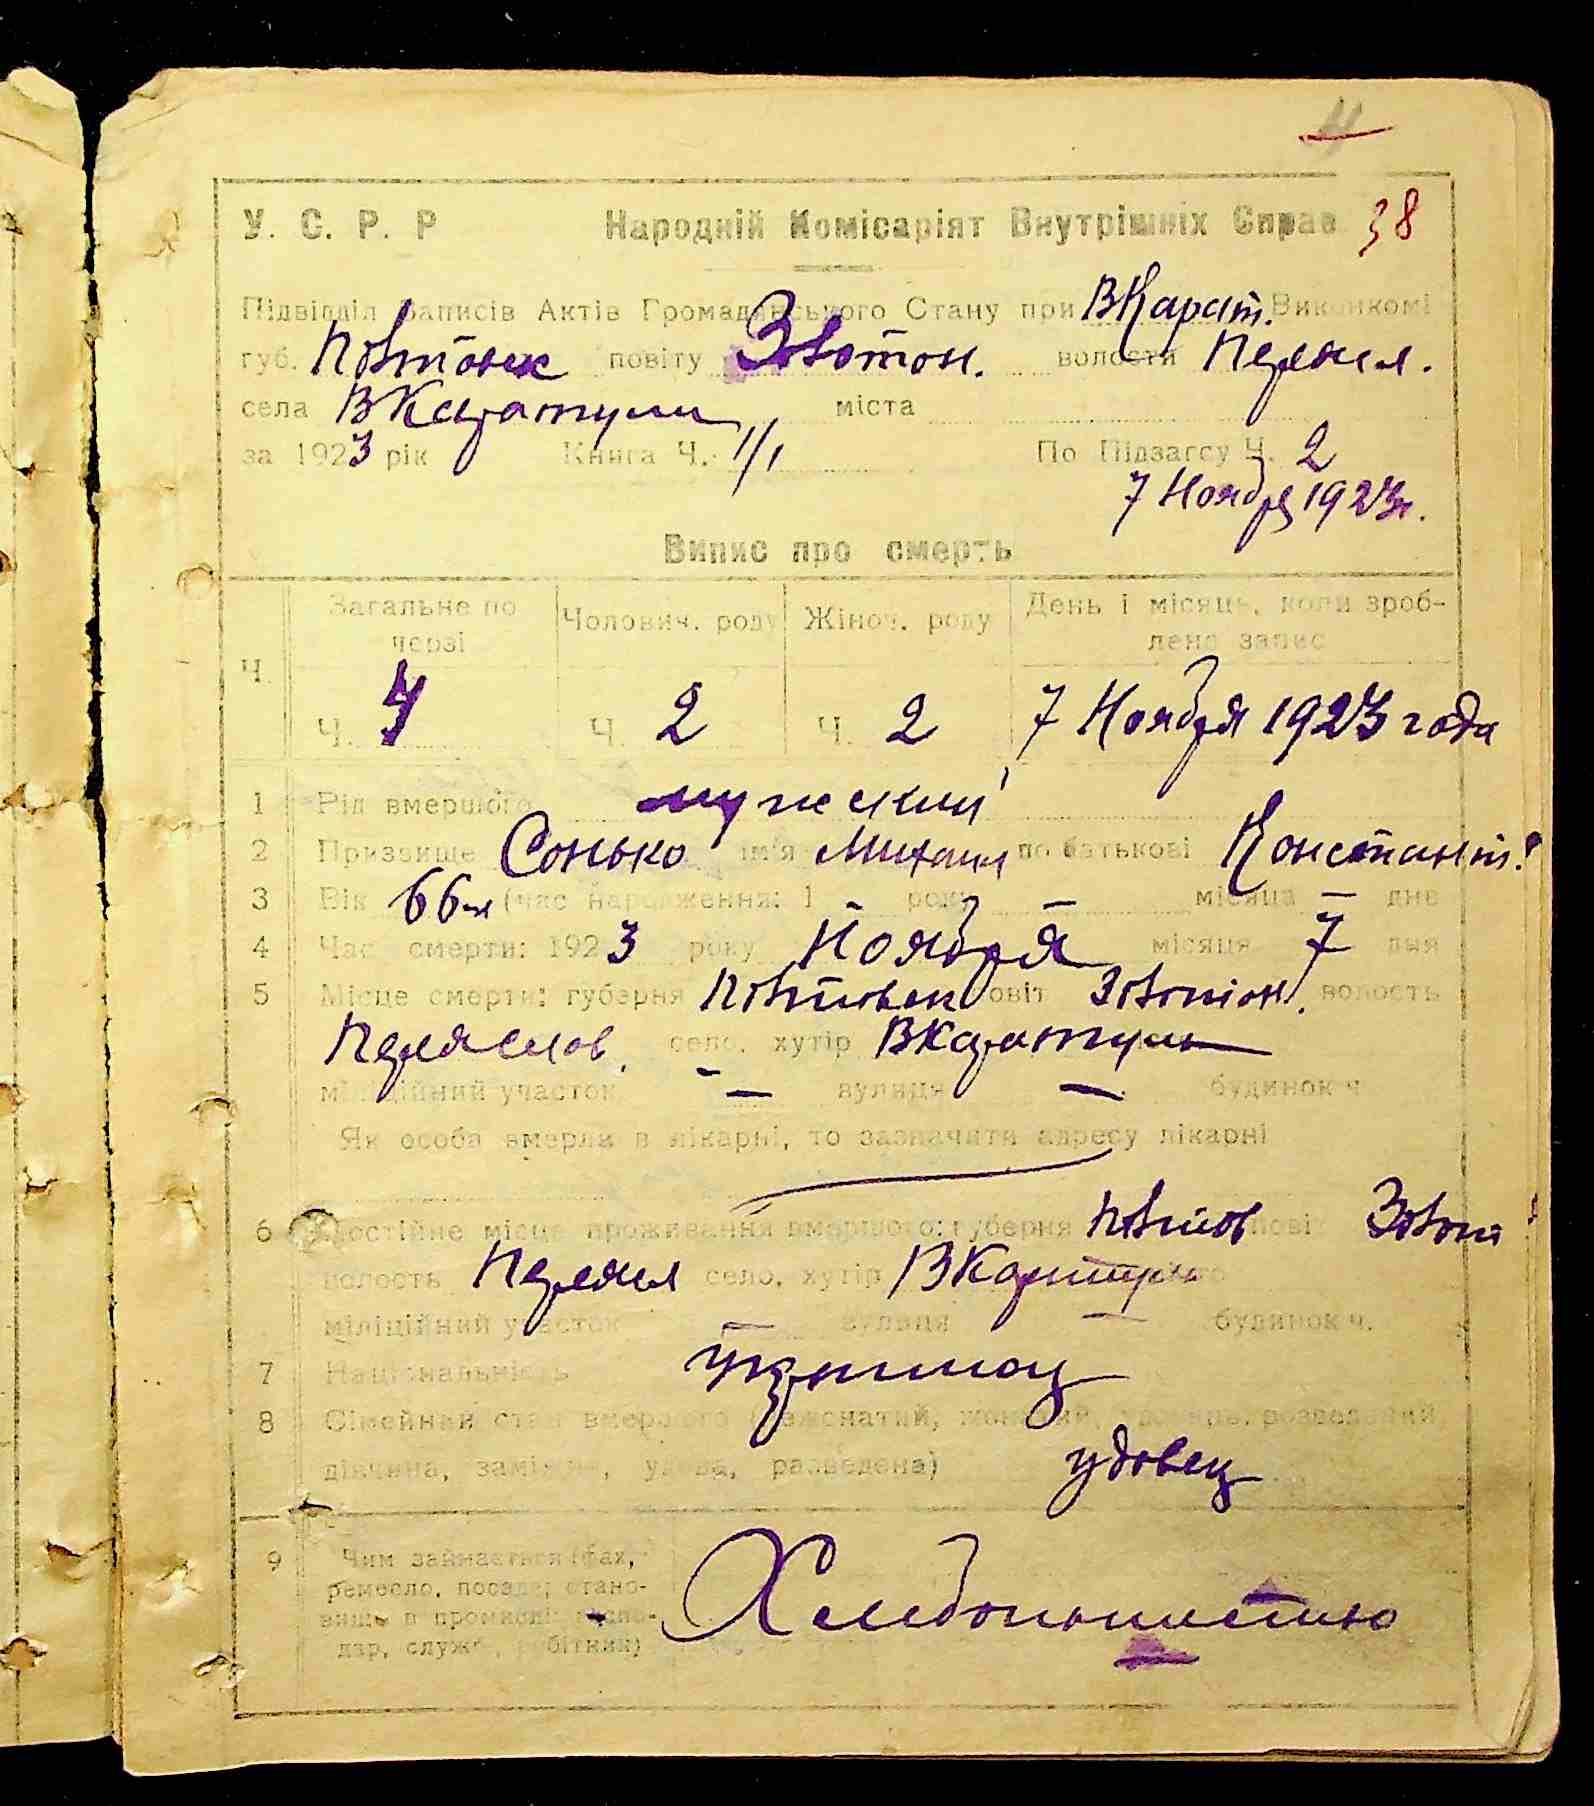 У. С. Р. Р Народній Комісаріят Внутрішніх Справ 38
Підвідділ Записів Актів Громадянського Стану при ВКарат. Виконкомі
губ. Полтавск повіту Золотон. волости Переясл.
села ВКаратули міста
за 1923 рік Книга Ч. 1/1 По Підзагсу Ч. 2
7 Ноября 1923г.
Випис про смерть
Ч. Загальне по черзі Чолович. роду Жіноч. роду День і місяць, коли зроб-
лено запис
Ч. 4 Ч. 2 Ч. 2 7 Ноября 1923 года
1 Рід вмершого мужский
2 Прізвище Сонько ім'я Михаил по батькові Констант.
3 Вік 66 л (час народження: 1 — року — місяця — дне
4 Час смерти: 1923 року Ноября місяця 7 дня
5 Місце смерти: губерня Полтавск повіт Золотон. волость
Переяслов. село, хутір ВКаратуль
міліційний участок — вулиця — будинок ч
Як особа вмерла в лікарні, то зазначити адресу лікарні
6 Постійне місце проживання вмершого: губерня Полтав повіт Золот
волость Переясл село, хутір ВКаратули
міліційний участок — вулиця — будинок ч.
7 Національність украинец
8 Сімейний стан вмершого (нежонатий, жонатий, удовець, розведений,
дівчина, заміжня, удова, разведена) удовец
9 Чим займається (фах,
ремесло, посада; стано-
вище в промислі: госпо-
дар, служб., робітник) Хлебопашество